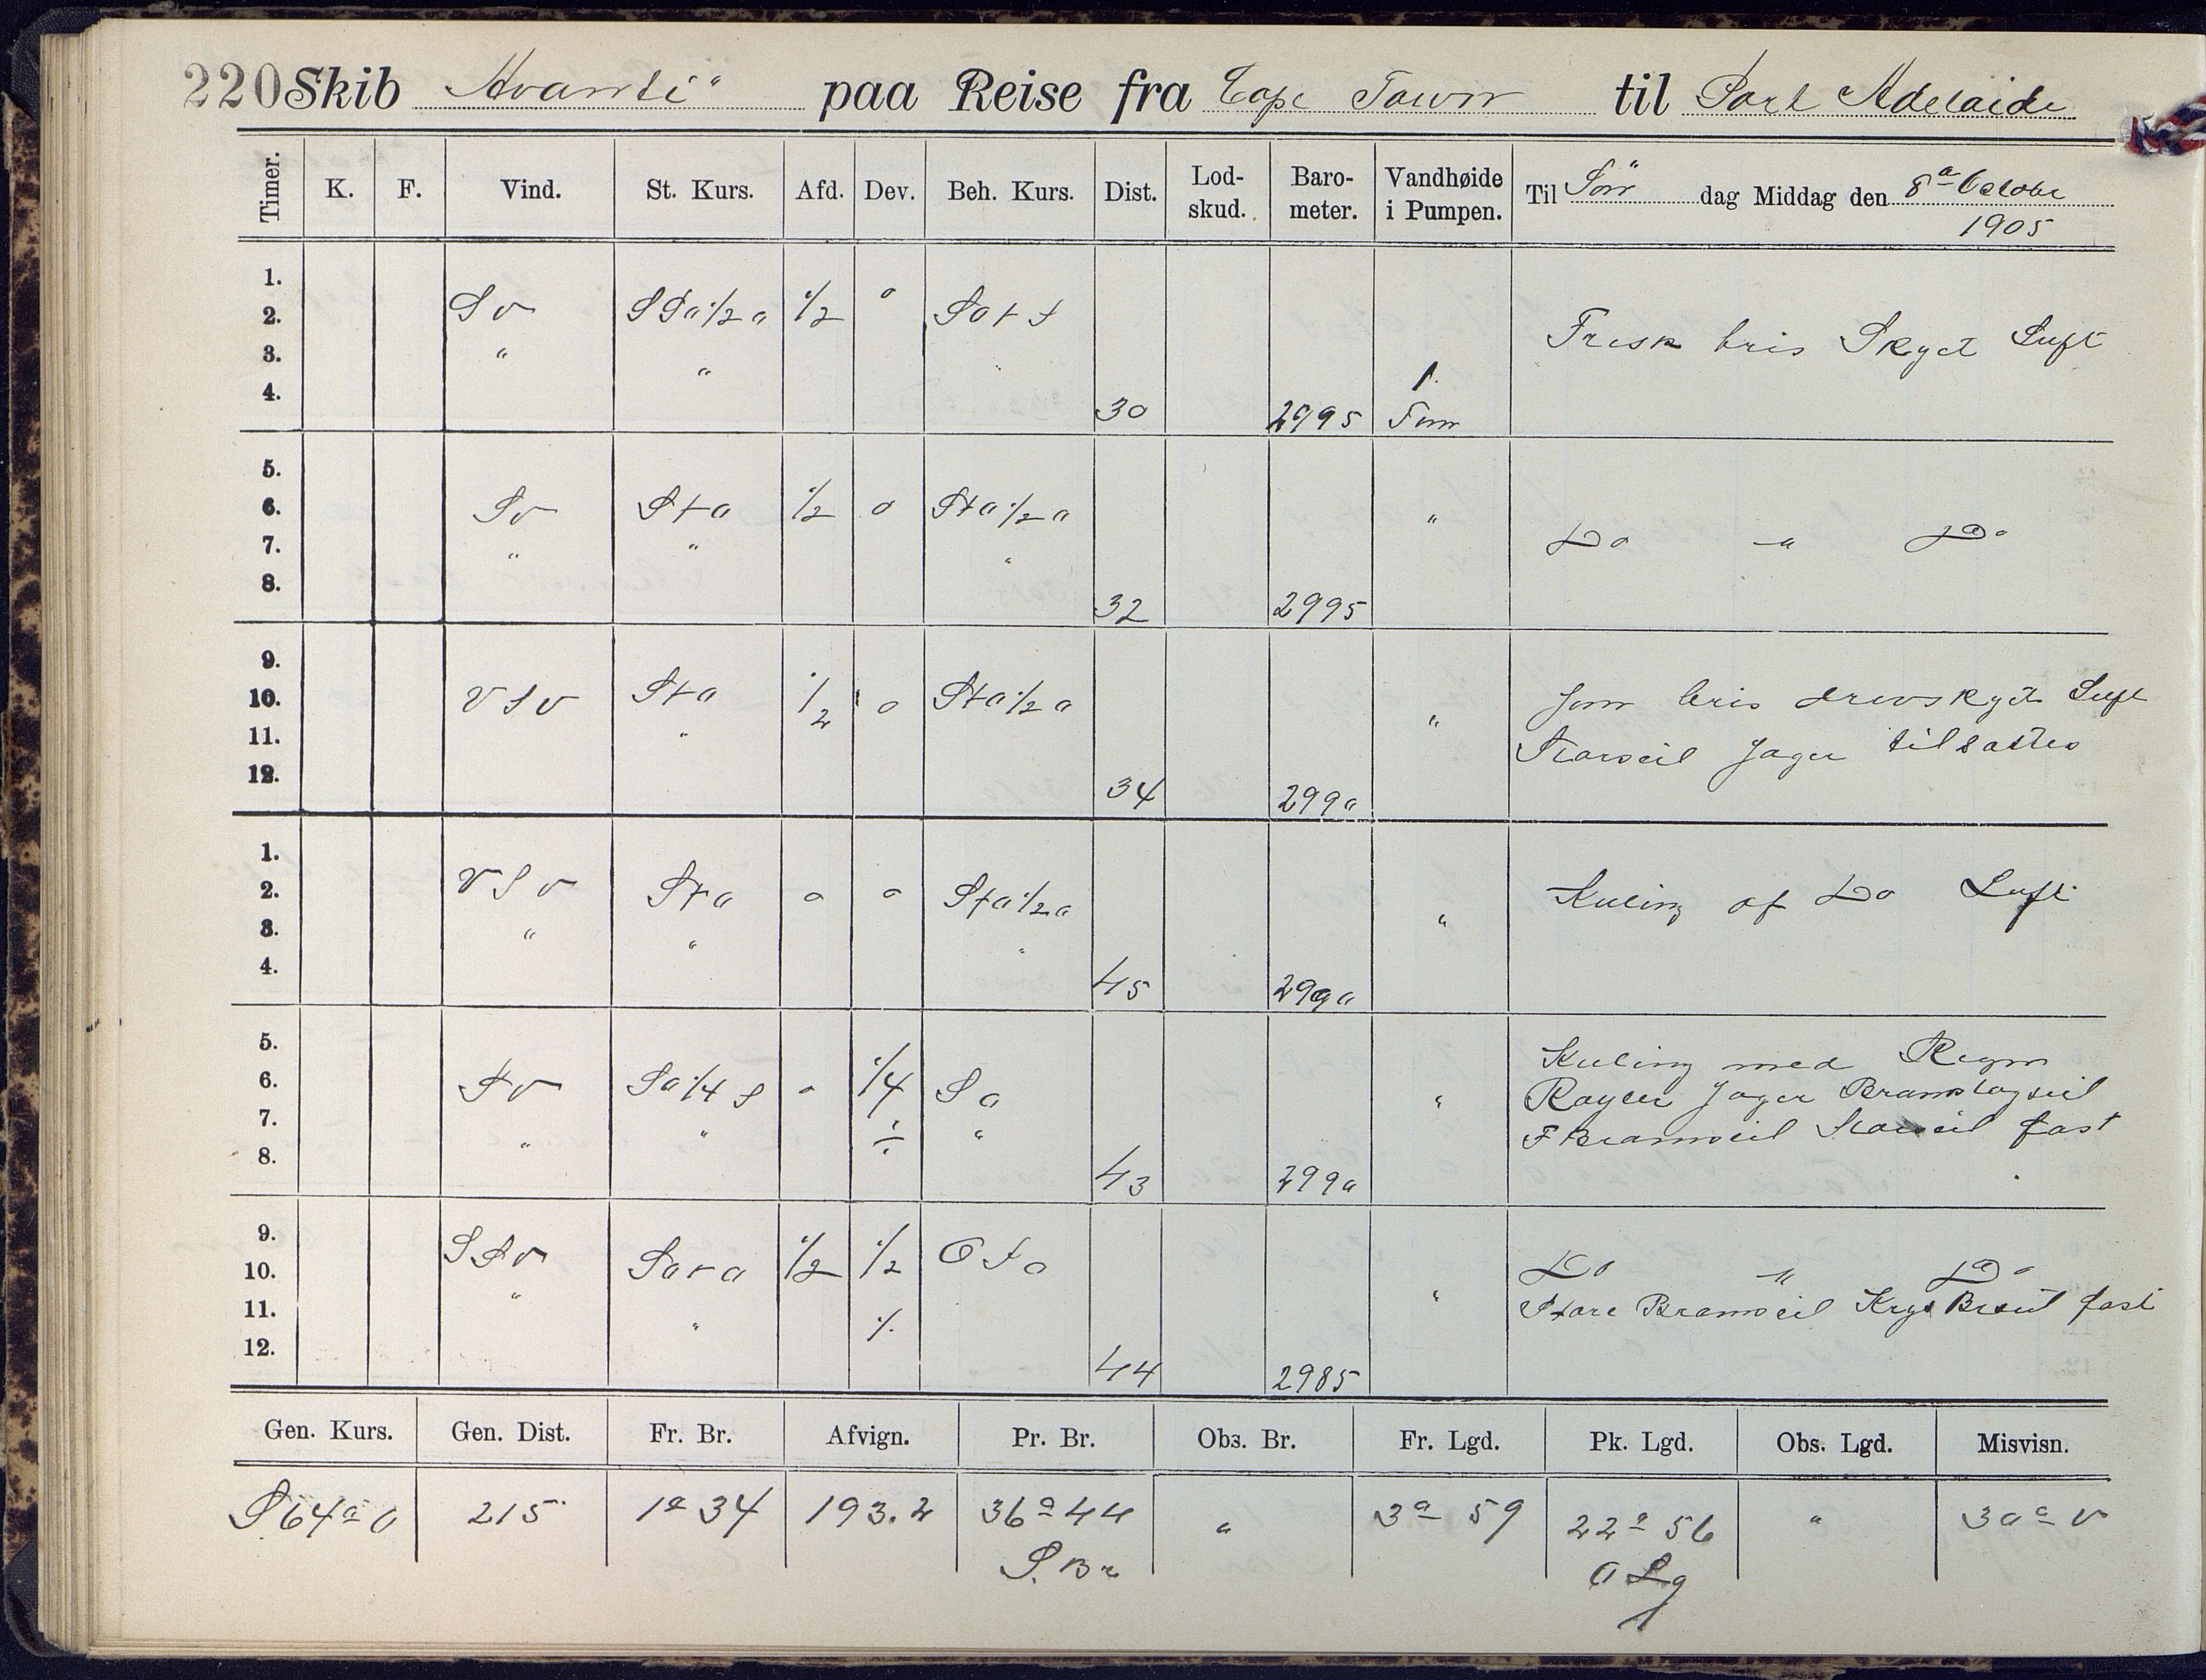 220 Skib Avanti" paa Reise fra Cape Town til Port Adelaide
Timer. K. F. Vind. St. Kurs. Afd. Dev. Beh. Kurs. Dist. Lod-skud. Baro-meter. Vandhøide i Pumpen. Til Søn dag Middag den 8de Octobr
1905
1.
2. SV SSO1/2O 1/2 0 SOtS Frisk bris Skyet Luft
3. " "
4. 30 2995 1. Tom
5.
6. SV StO 1/2 0 StO1/2O "
7. " " " Do " Do
8. 32 2995
9.
10. VSV StO 1/2 0 StO1/2O " Jevn bris drivskyet Luft
11. " Storseil Jager tilsattes
12. 34 2990
1.
2. VSV StO 0 0 StO1/2O " Kuling af Do Luft
3. " " "
4. 45 2990
5. Kuling med Regn
6. SV SO1/4S 0 1/4 SO " Røyler Jager Bramstagseil
7. " " ÷ " F Bramseil Storseil fast
8. 43 2990
9.
10. SSV SOtO 1/2 1/2 OSO Do " Do
11. " " ÷ " Store Bramseil Kryds Brseil fast
12. 44 2985
Gen. Kurs. Gen. Dist. Fr. Br. Afvign. Pr. Br. Obs. Br. Fr. Lgd. Pk. Lgd. Obs. Lgd. Misvisn.
S64°O 215 1° 34 193.2 36° 44 " 3° 59 22° 56 " 30° V
S. Br O Lg